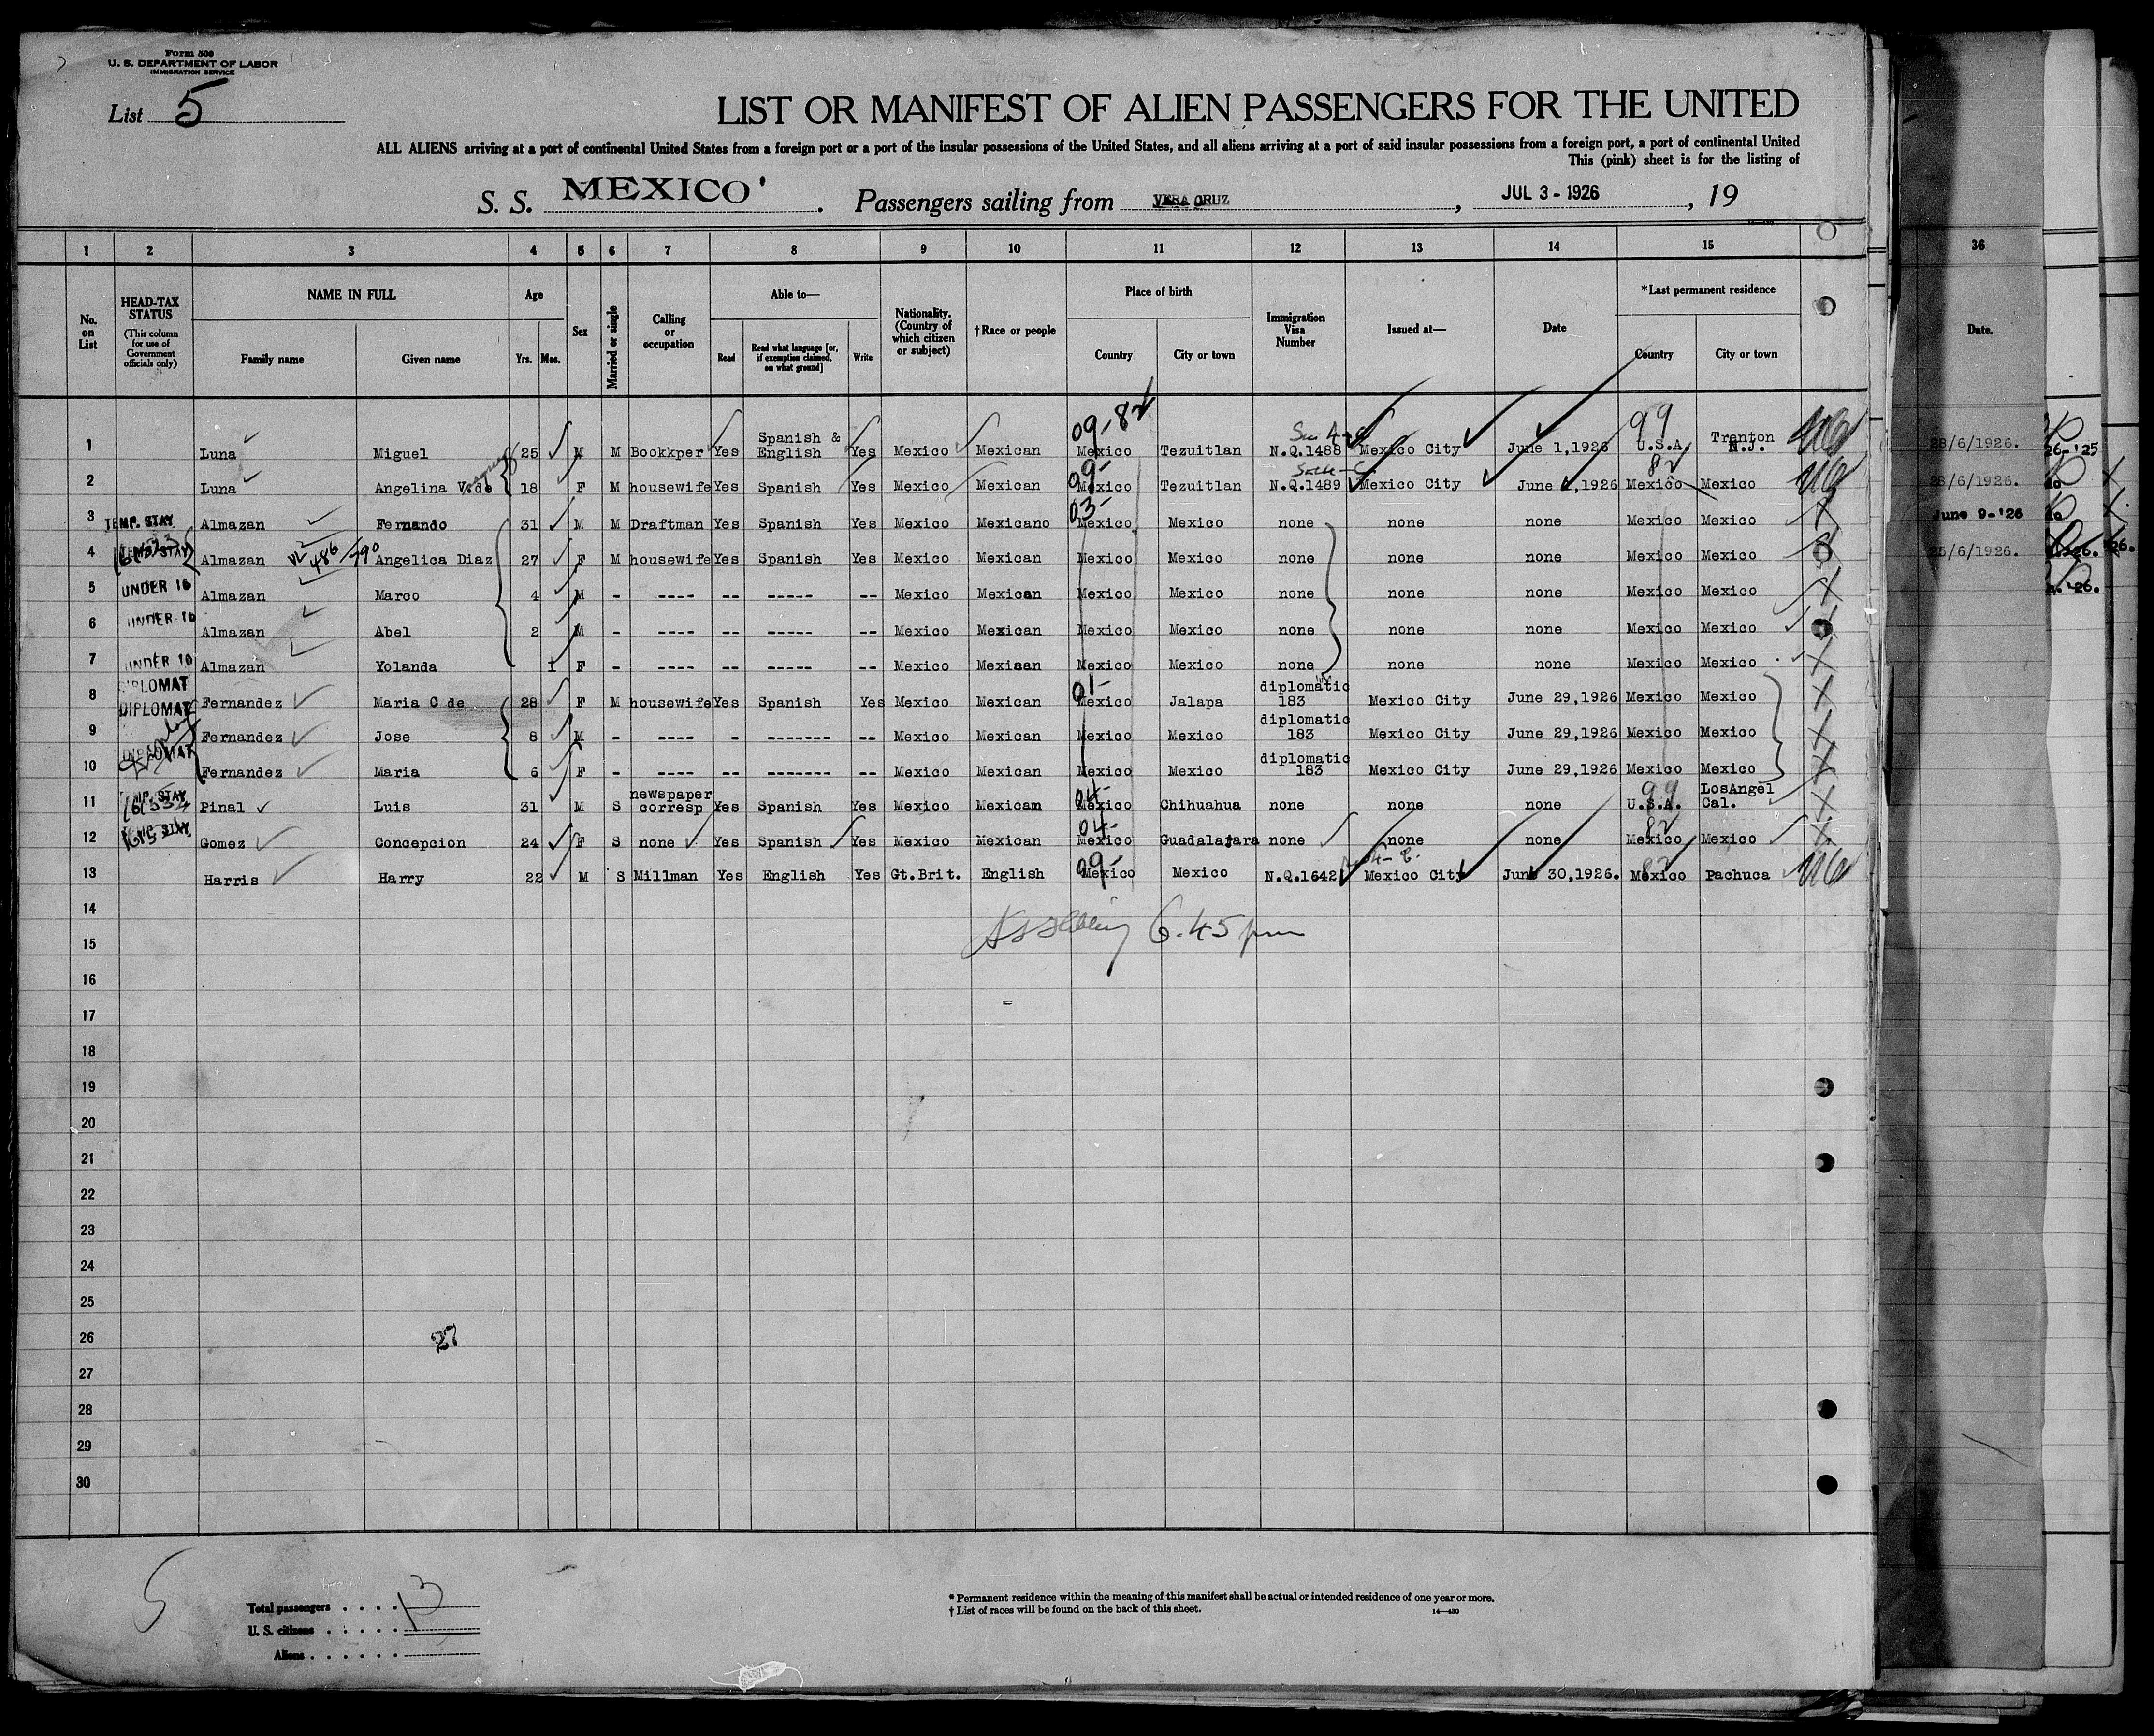 Form 500
U. S. DEPARTMENT OF LABOR
IMMIGRATION SERVICE
List 5
LIST OR MANIFEST OF ALIEN PASSENGERS FOR THE UNITED
ALL ALIENS arriving at a port of continental United States from a foreign port or a port of the insular possessions of the United States, and all aliens arriving at a port of said insular possessions from a foreign port, a port of continental United
This (pink) sheet is for the listing of
S. S. MEXICO . Passengers sailing from VERA CRUZ , JUL 3 - 1926 , 19
1 2 3 4 5 6 7 8 9 10 11 12 13 14 15 36
No. on List
HEAD-TAX STATUS (This column for use of Government officials only)
NAME IN FULL Family name Given name
Age Yrs. Mos.
Sex
Married or single
Calling or occupation
Able to— Read Read what language [or, if exemption claimed, on what ground] Write
Nationality. (Country of which citizen or subject)
†Race or people
Place of birth Country City or town
Immigration Visa Number
Issued at—
Date
*Last permanent residence Country City or town
Date.
1 Luna Miguel 25 M M Bookkper Yes Spanish & English Yes Mexico Mexican 09-82 Mexico Tezuitlan N.Q.1488 Mexico City June 1,1926 99 U.S.A. Trenton N.J. 28/6/1926. 26-'25
2 Luna Angelina V.de 18 F M housewife Yes Spanish Yes Mexico Mexican 09- Mexico Tezuitlan N.Q.1489 Mexico City June 1,1926 82 Mexico Mexico 28/6/1926.
3 TEMP. STAY Almazan Fernando 31 M M Draftman Yes Spanish Yes Mexico Mexicano 03- Mexico Mexico none none none Mexico Mexico June 9-'26
4 TEMP. STAY Almazan Angelica Diaz 27 F M housewife Yes Spanish Yes Mexico Mexican Mexico Mexico none none none Mexico Mexico 25/6/1926. 26.
5 UNDER 16 Almazan Marco 4 M - ---- -- ----- -- Mexico Mexican Mexico Mexico none none none Mexico Mexico
6 UNDER 16 Almazan Abel 2 M - ---- -- ----- -- Mexico Mexican Mexico Mexico none none none Mexico Mexico
7 UNDER 16 Almazan Yolanda 1 F - ---- -- ----- -- Mexico Mexican Mexico Mexico none none none Mexico Mexico
8 DIPLOMAT DIPLOMAT Fernandez Maria C de 28 F M housewife Yes Spanish Yes Mexico Mexican 01- Mexico Jalapa diplomatic 183 Mexico City June 29,1926 Mexico Mexico
9 Fernandez Jose 8 M - ---- - ------- -- Mexico Mexican Mexico Mexico diplomatic 183 Mexico City June 29,1926 Mexico Mexico
10 DIPLOMAT Fernandez Maria 6 F - ---- -- ------- -- Mexico Mexican Mexico Mexico diplomatic 183 Mexico City June 29,1926 Mexico Mexico
11 TEMP. STAY Pinal Luis 31 M S newspaper corresp Yes Spanish Yes Mexico Mexican 04- Mexico Chihuahua none none none 99 U.S.A. LosAngel Cal.
12 TEMP. STAY Gomez Concepcion 24 F S none Yes Spanish Yes Mexico Mexican 04- Mexico Guadalajara none none none 82 Mexico Mexico
13 Harris Harry 22 M S Millman Yes English Yes Gt.Brit. English 09- Mexico Mexico N.Q.1642 Mexico City June 30,1926. 82 Mexico Pachuca
14 6.45 pm
15
16
17
18
19
20
21
22
23
24
25
26 27
27
28
29
30
5
Total passengers . . . . 13
U. S. citizens . . . . .
Aliens . . . . . .
* Permanent residence within the meaning of this manifest shall be actual or intended residence of one year or more.
† List of races will be found on the back of this sheet.
14—430